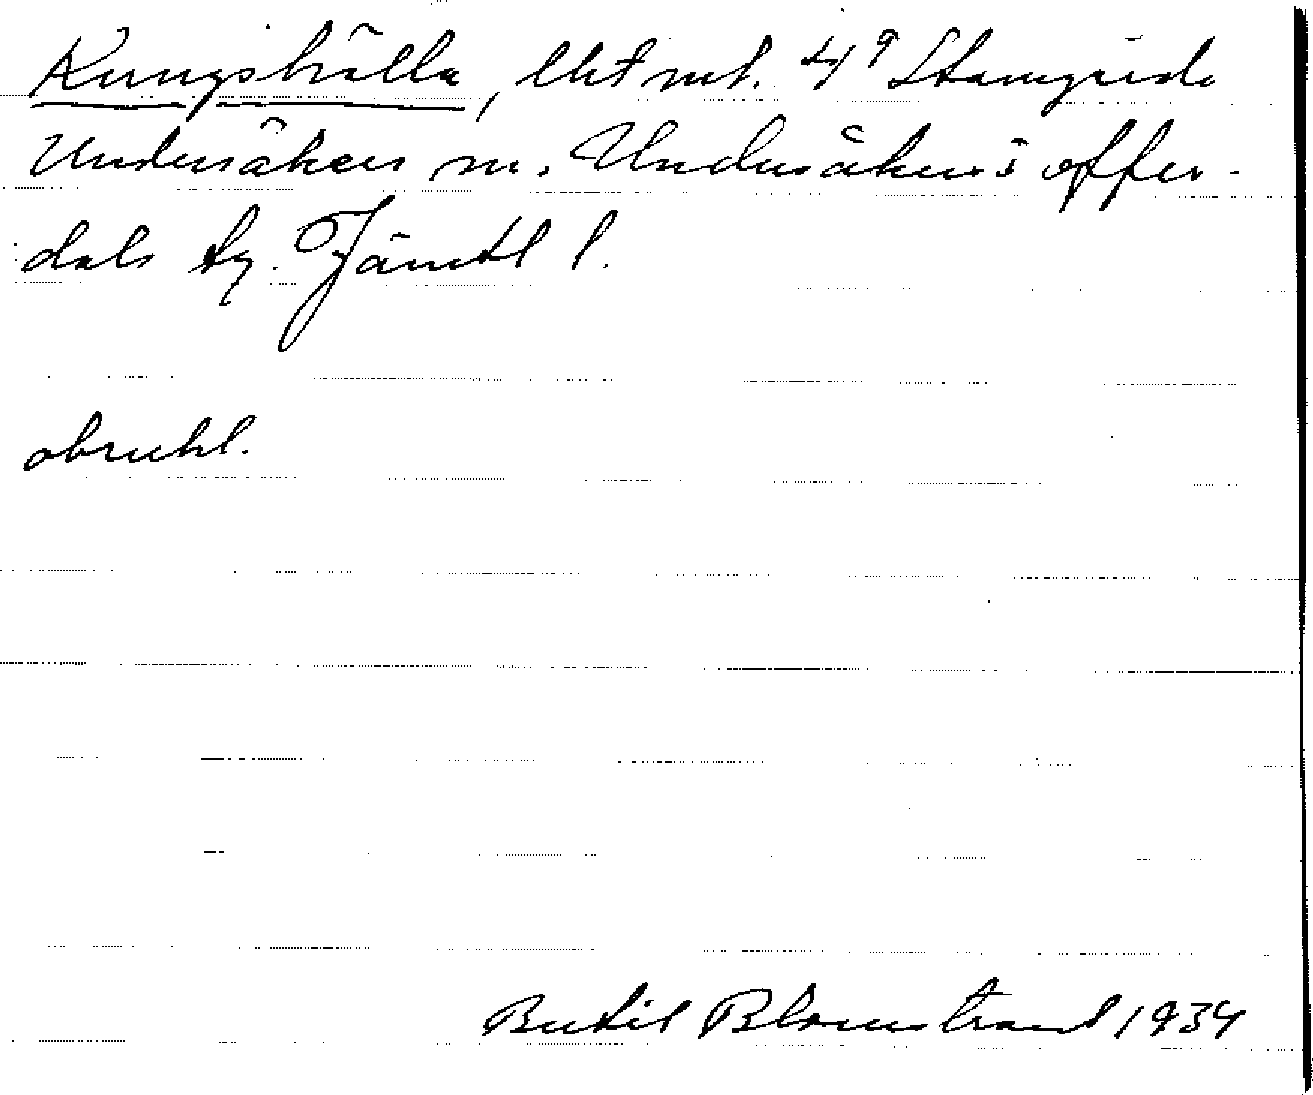 Kungshälla, lht mt. 4⁹ Stamgärde
Undersåkers sn. Undersåkers o offer-
dals tg. Jämtl l.
obruhl.
Bertil Blomstrand 1934